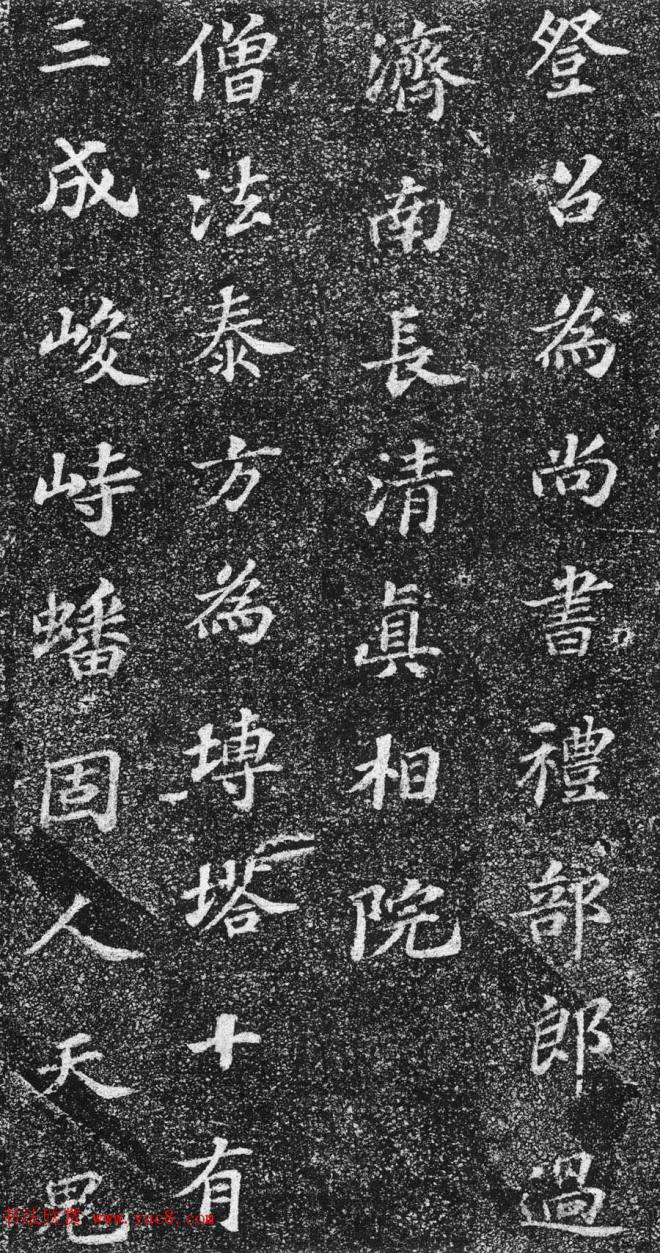 登召為尚書禮部郎過
濟南長清眞相院
僧法泰方為塼塔十有
三成峻峙蟠固人天鬼
书法欣赏 www.yac8.com